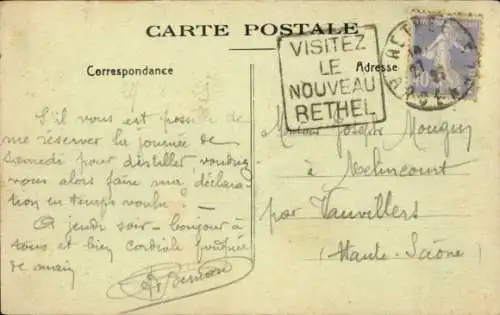 CARTE POSTALE
Correspondance
Adresse
VISITEZ
LE
NOUVEAU
RETHEL
RETHEL
ARDENNES
40
S'il vous est possible de
me réserver la journée de
Samedi pour distiller voudrez
vous alors faire ma déclara
tion en temps voulu ?
A jeudi soir - bonjour à
tous et bien cordiale poignée
de main
Monsieur Joseph Mougin
à Melincourt
par Vauvillers
(Haute-Saône)